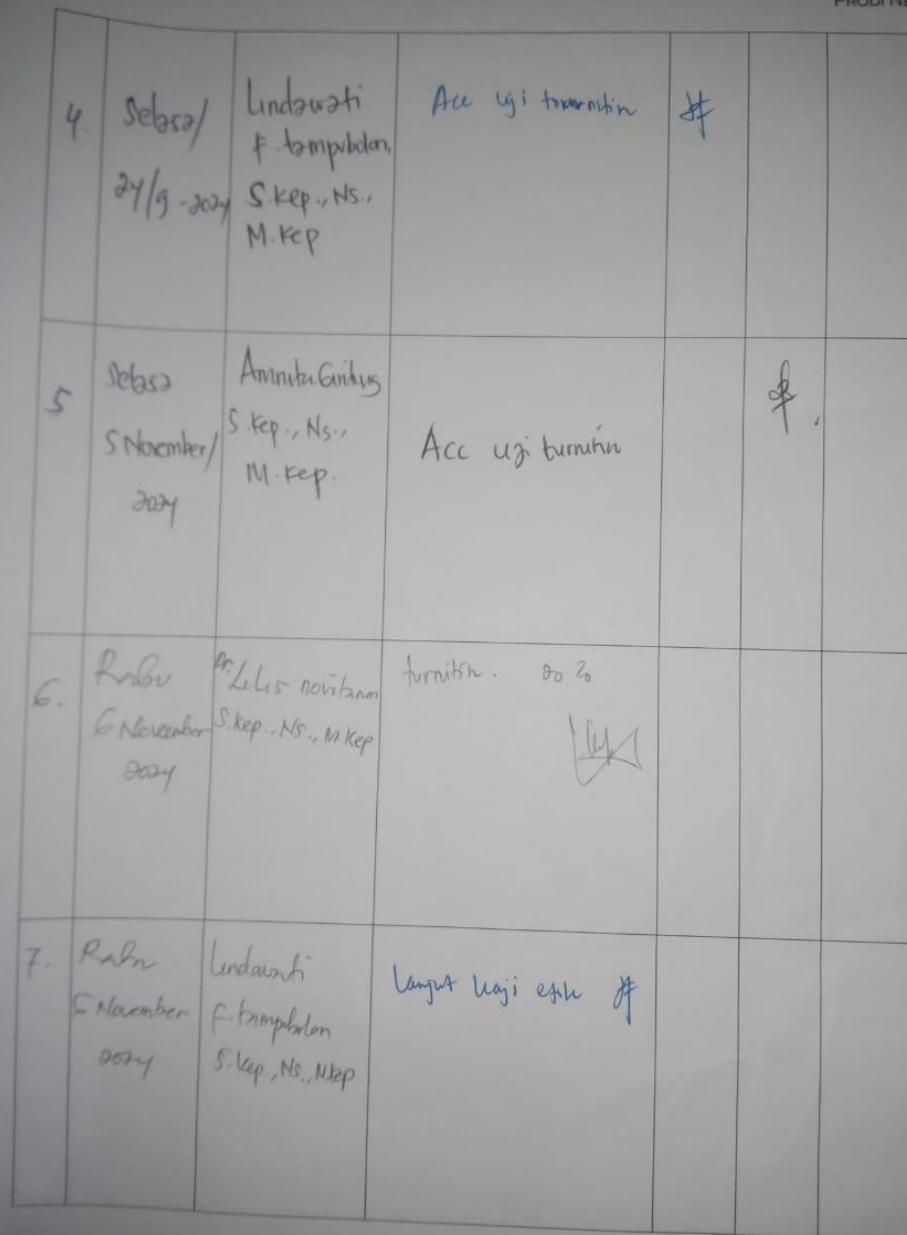 4. Selasa/ 24/9-2024
Lindawati
F. tampubolon,
S.Kep., Ns.,
M.Kep
Acc uji tovornitin
5 Selasa
5 November/
2024
Amnita Ginting
S.Kep., Ns.,
M.Kep.
Acc uji turnitin
6. Rabu
6 November
2024
Lilis novitarum
S.Kep., Ns., M.Kep
turnitin. 20 %
7. Rabu
6 November
2024
Lindawati
F. tampubolon
S.Kep., Ns., M.Kep
Lanjut kaji etik